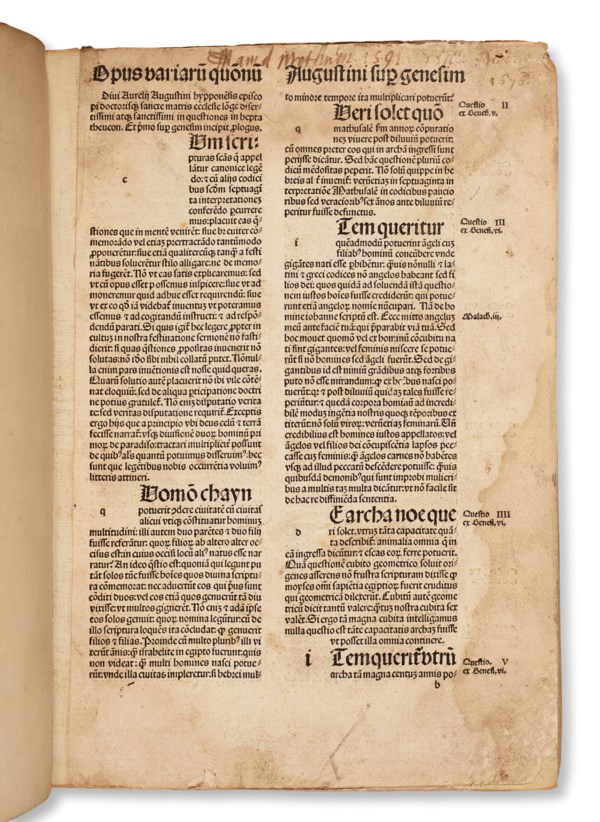 Opus variarū quōnū
Augustini sup genesim
Divi Aurelij Augustini hypponēsis episco
pi doctorisqʒ sancte matris ecclesie lōge diser
tissimi atqʒ sanctissimi in questiones in hepta
theucon. Et pmo sup genesim incipit plogus.
Vm scri-
c
pturas scās q̄ appel
latur canonice legē
do: ⁊ cū alijs codici
bus scdm septuagī
ta interpretationeʒ
conferēdo pcurrere
mus: placuit eas q̄-
stiones que in mentē venirēt: siue breuiter cō
memorādo vel etiaʒ pertractādo tantūmodo
pponerētur: siue etiā qualitercūqʒ tanqʒ a festi
nātibus soluerētur stilo alligare: ne de memo
ria fugerēt. Nō vt eas satis explicaremus: sed
vt cum opus esset possemus inspicere: siue vt ad
moneremur quid adhuc esset requirendū: siue
vt ex eo qd iā videbaf inuentū vt poteramus
essemus ⁊ ad cogitandū instructi: ⁊ ad respō-
dendū parati. Si quis igif hec legere, ppter in
cultuʒ in nostra festinatione sermonē nō fasti-
dierit: si quas q̄stiones ppositas inuenerit nō
solutas: nō ideo sibi nihil collatū putet. Nōnul-
la enim pars inuētionis est nosse quid queras.
Quarū solutio autē placuerit nō ibi vile cōtē-
nat eloquiū: sed de aliqua pticipatione doctri
ne potius gratulef. Nō enim disputatio verita
te: sed veritas disputatione requirif. Exceptis
ergo hijs que a principio vbi deus celū ⁊ terrā
fecisse narraf: vsqʒ ad diuisionē duoꝝ hominū pri
moꝝ de paradiso: tractari multiplicif possunt
littens attineri.
Vomō chayn
q
potuerit ꝯdere ciuitatē cū ciuitas
alicui vtiqʒ cōstituatur hominuʒ
multitudini: illi autem duo parētes ⁊ duo filij
fuisse referunt: quoꝝ filioꝝ ab altero alter oc
cisus est: in cuius occisi locū ali⁹ natus esse nar
ratur? An ideo q̄stio est: quoniā qui legunt pu
tāt solos tūc fuisse hoīes quos diuina scriptu-
ra cōmemorat: nec aduertūt eos qui prius sunt
cōditi duos: vel etiā eos quos genuerūt tā diu
vixisse: vt multos gignerēt. Nō enim ⁊ adā ipse
eos solos genuit: quoꝝ nomina legūtur: cū de
illo scriptura loquēs ita cōcludat: q̄ genuerit
filios ⁊ filias. Proinde cū multo pluribus illi vi
xerūt ānis: q̄ israhelite in egipto fuerunt: quis
non videat: q̄ multi homines nasci potue-
rūt: vnde illa ciuitas impleretur: si hebrei mul-
to minore tempore ita multiplicari potuerūt?
Veri solet quō
q
mathusalē fm annoꝝ cōputatio
nes viuere post diluuiū potuerit:
cū omnes preter eos qui in archā ingressi sunt
perijsse dicātur. Sed hāc questionē pluriū co-
dicū mēdositas peperit. Nō solū quippe in he
breis aliter inuenif: verūetiaʒ in septuaginta in
terpretatiōe Mathusalē in codicibus paucio
ribus sed veracioribus sex ānos ante diluuiū re
peritur fuisse defunctus.
Questio II
ex Genesi. v.
Tem queritur
i
quēadmodū potuerint āgeli cuʒ
filiabus hominū concūbere vnde
gigātes nati esse phibētur: quis nōnulli ⁊ la
tini ⁊ greci codices nō angelos habeant sed fi
lios dei: quos quidā ad soluendā istā questio
nem iustos hoies fuisse crediderūt: qui potue
rint etiā angeloꝝ nomie nūcupari. Nā ⁊ de ho
mine iohanne scriptū est. Ecce mitto angeluʒ
meū ante faciē tuā: qui pparabit viā tuā. Sed
hoc mouet quomō vel ex hominū cōcubitu na
ti sint gigantes: vel feminis miscere se potue-
rūt si nō homines sed āgeli fuerūt. Sed de gi-
gantibus id est nimiū grādibus atqʒ fortibus
puto nō esse mirandum: q̄ ex hominibus nasci po
tuerūt:
Questio III
ex Genesi. vi.
Malach. iij.
E archa noe que
d
ri solet: vtruʒ tāta capacitate quā-
ta describif: animalia omnia q̄ in
eā ingressa dicūtur: ⁊ escas eoꝝ ferre potuerit.
Quā questionē cubito geometrico soluit origenes asserens nō frustra scripturam dixisse q̄
moyses omni sapiētia egiptioꝝ fuerit eruditus
qui geometrica dilexerūt. Cubitū autē geome
tricū dicit tantū valere: q̄tum nostra cubita sex
valēt. Si ergo tā magna cubita intelligamus
nulla questio est tāte capacitatis archaʒ fuisse
vt posset illa omnia continere.
Questio IIII
ex Genesi. vi.
i Tem querit vtrū
archa tā magna centuʒ annis po-
Questio. V
ex Genesi. vi.
b